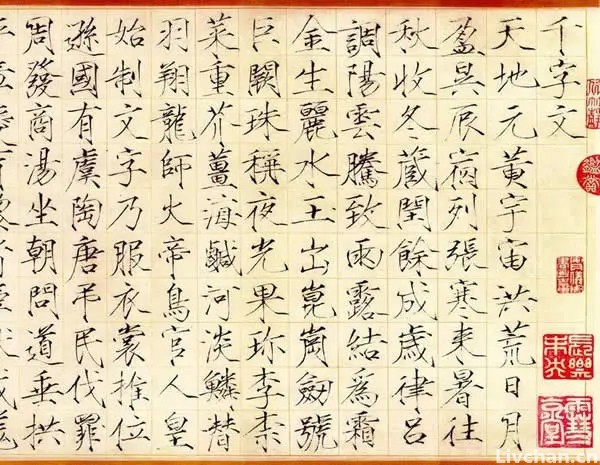 千字文
天地元黃宇宙洪荒日月
盈昃辰宿列張寒来暑往
秋收冬藏閏餘成歲律呂
調陽雲騰致雨露結爲霜
金生麗水玉出崑崗劒號
巨闕珠稱夜光果珍李柰
菜重芥薑海鹹河淡鱗潛
羽翔龍師火帝鳥官人皇
始制文字乃服衣裳推位
遜國有虞陶唐弔民伐罪
周發商湯坐朝問道垂拱
Livchan.cn